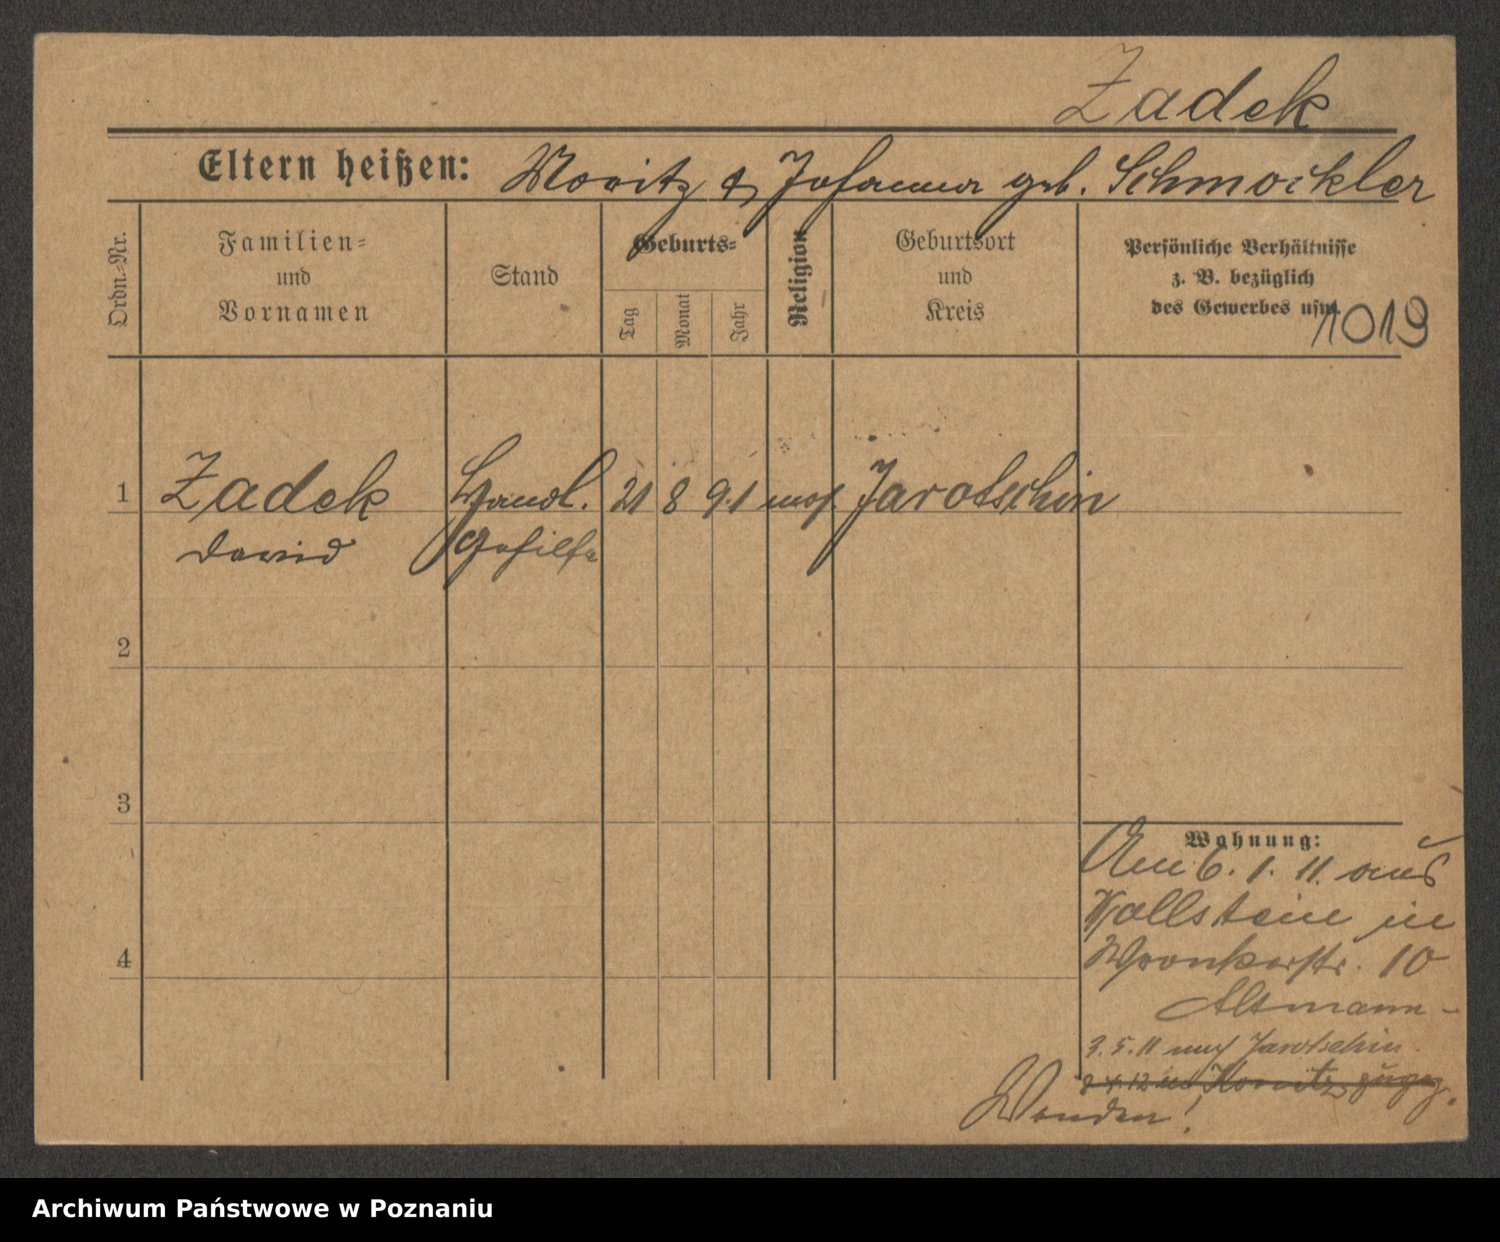 Zadek
Eltern heißen: Moritz & Johanna geb. Schmockler
Ordn.-Nr.
Familien-
und
Vornamen
Stand
Geburts-
Tag
Monat
Jahr
Religion
Geburtsort
und
Kreis
Persönliche Verhältnisse
z. B. bezüglich
des Gewerbes usw.
1019
1 Zadek Handl. 21 8 91 mos. Jarotschin
David Gehilfe
2
3
4
Wohnung:
Am 6. 1. 11. aus
Wollstein in
Wronkerstr. 10
Altmann
3. 5. 11 nach Jarotschin
8 4. 12 zugez.
Wenden!
Archiwum Państwowe w Poznaniu